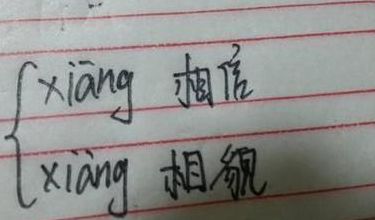 xiāng 相信
xiàng 相貌